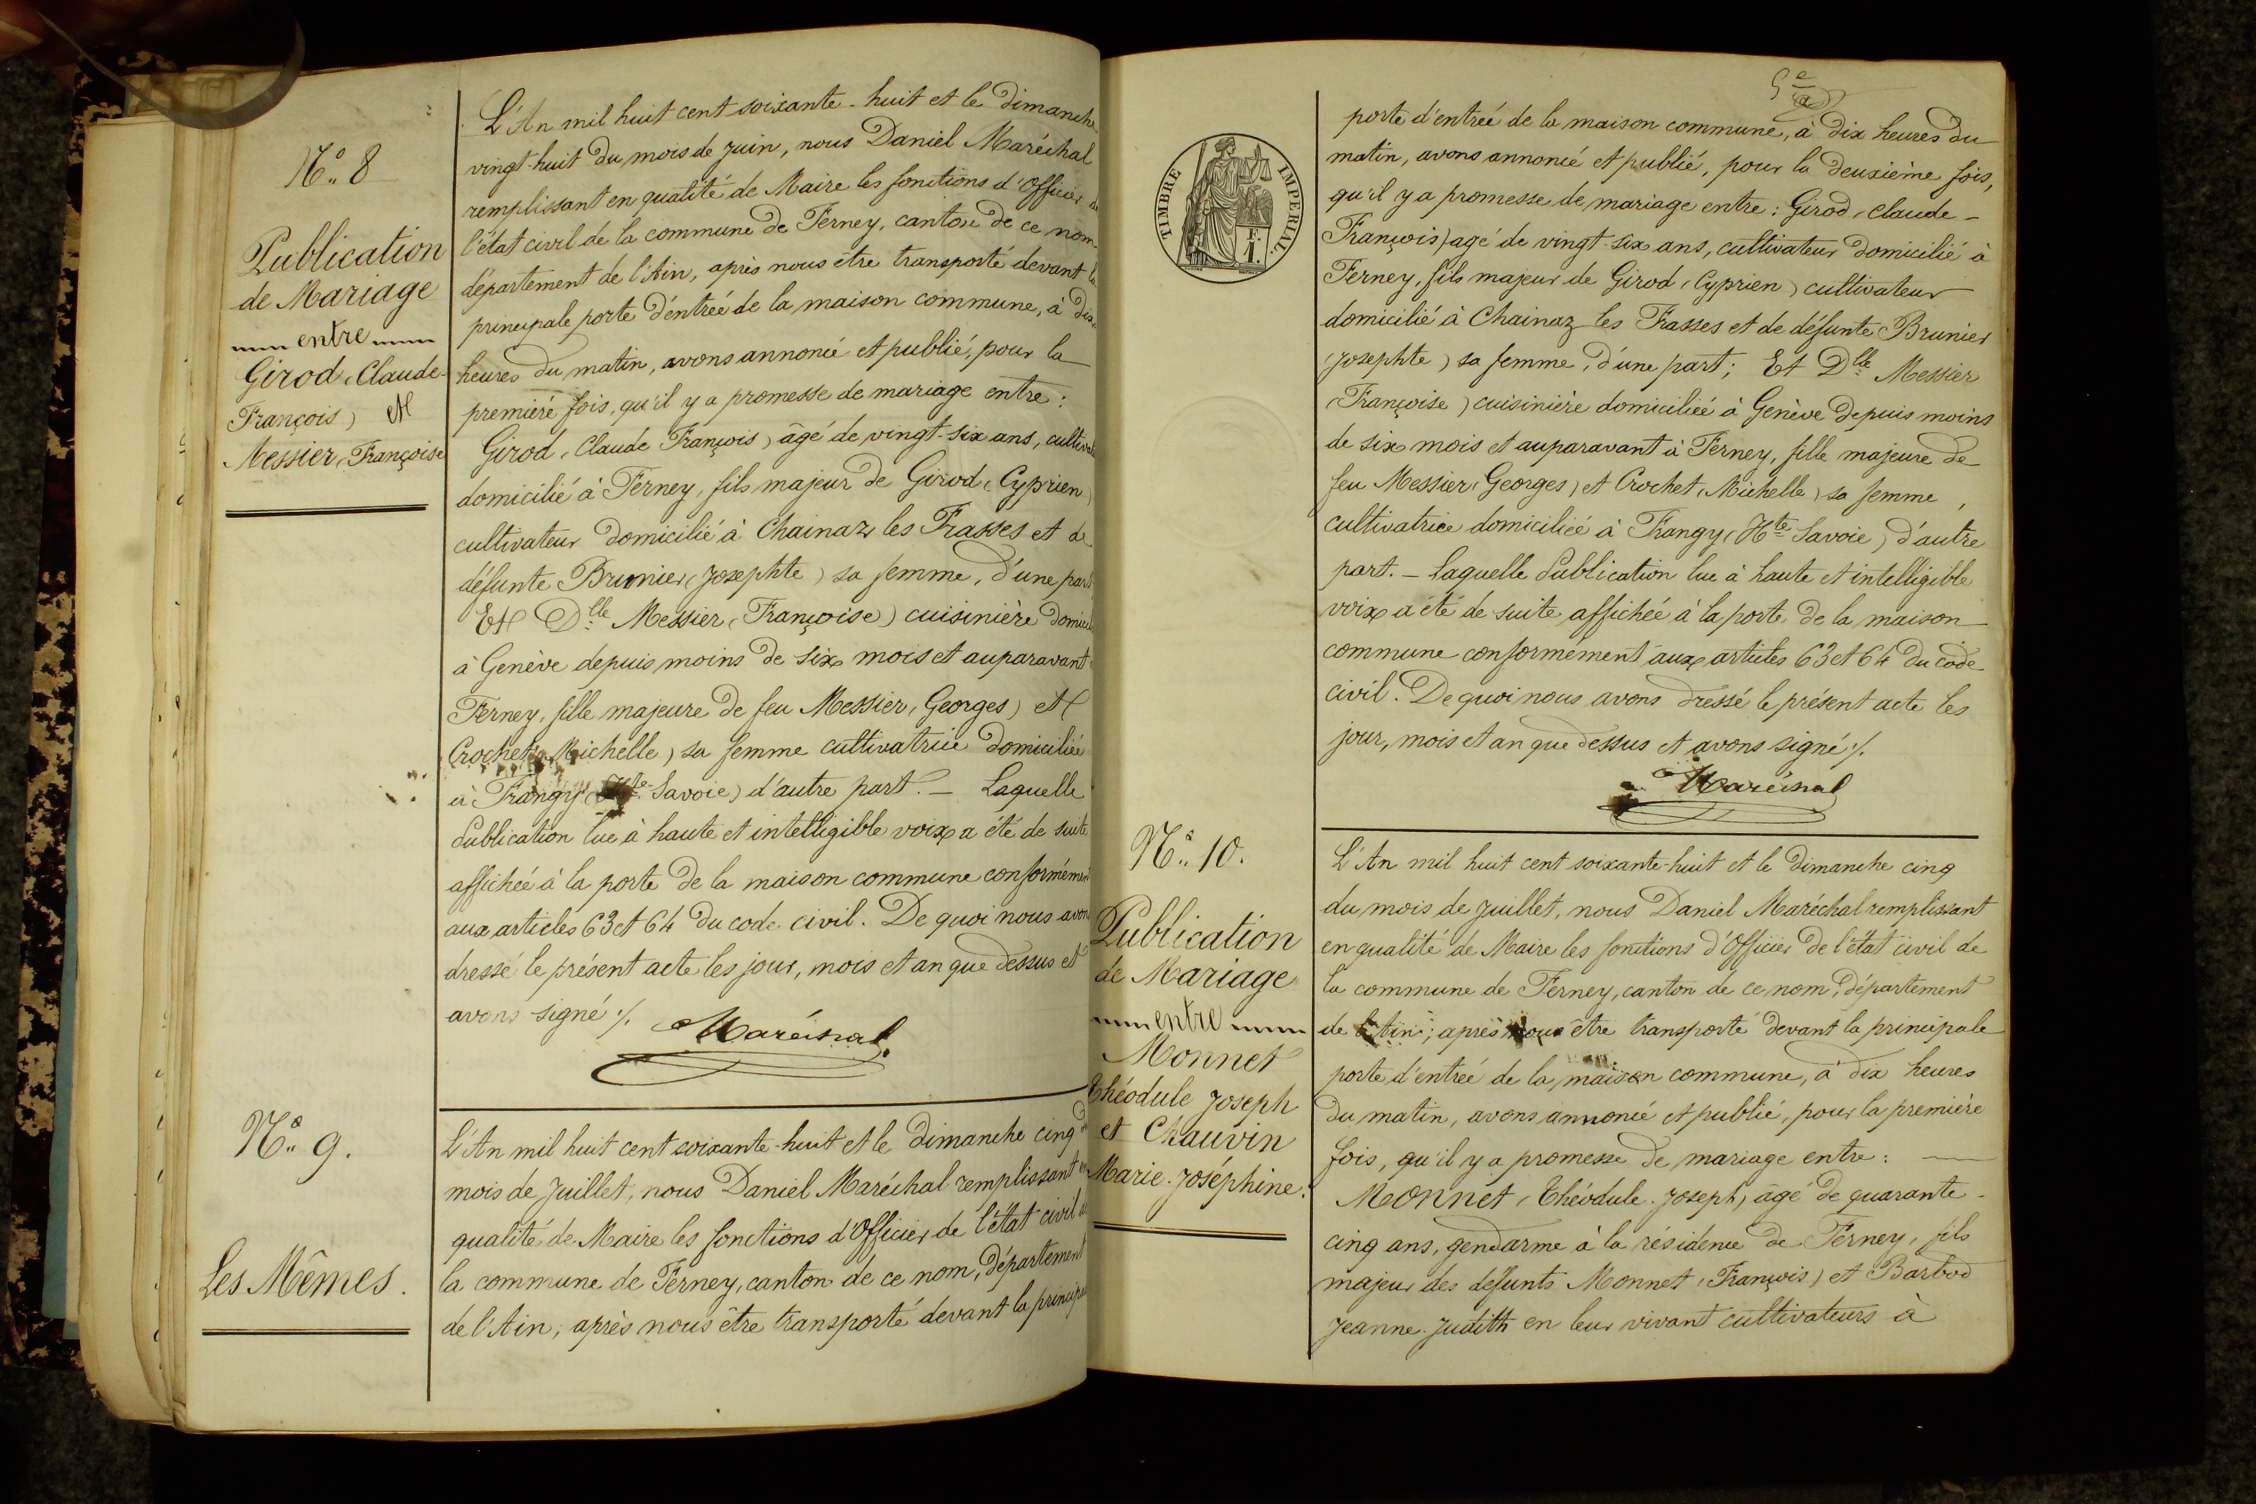 N° 8
Publication
de Mariage
entre
Girod (Claude-
François) et
Messier (Françoise
L'An mil huit cent soixante-huit et le dimanche
vingt-huit du mois de juin, nous Daniel Maréchal
remplissant en qualité de Maire les fonctions d'Officier de
l'état civil de la commune de Ferney, canton de ce nom
département de l'Ain, après nous être transporté devant la
principale porte d'entrée de la maison commune, à dix
heures du matin, avons annoncé et publié, pour la
première fois, qu'il y a promesse de mariage entre :
Girod (Claude François) âgé de vingt-six ans, cultivat
domicilié à Ferney, fils majeur de Girod (Cyprien)
cultivateur domicilié à Chainaz les Frasses et de
défunte Brunier (Josephte) sa femme, d'une part
Et Dlle Messier (Françoise) cuisinière domicil
à Genève depuis moins de six mois et auparavant
Ferney, fille majeure de feu Messier (Georges) et
Crochet (Michelle) sa femme cultivatrice domiciliée
à Frangy (Hte Savoie) d'autre part. — Laquelle
Publication lue à haute et intelligible voix a été de suite
affichée à la porte de la maison commune conformément
aux articles 63 et 64 du code civil. De quoi nous avons
dressé le présent acte les jour, mois et an que dessus et
avons signé ./.
Maréchal
N° 9.
Les Mêmes.
L'An mil huit cent soixante-huit et le dimanche cinq du
mois de Juillet, nous Daniel Maréchal remplissant en
qualité de Maire les fonctions d'Officier de l'état civil de
la commune de Ferney, canton de ce nom, département
de l'Ain, après nous être transporté devant la principale
TIMBRE IMPERIAL
F.
1.
porte d'entrée de la maison commune, à dix heures du
matin, avons annoncé et publié, pour la deuxième fois,
qu'il y a promesse de mariage entre : Girod (Claude-
François) agé de vingt-six ans, cultivateur domicilié à
Ferney, fils majeur de Girod (Cyprien) cultivateur
domicilié à Chainaz les Frasses et de défunte Brunier
(Josephte) sa femme, d'une part ; Et Dlle Messier
(Françoise) cuisinière domiciliée à Genève depuis moins
de six mois et auparavant à Ferney, fille majeure de
feu Messier (Georges) et Crochet (Michelle) sa femme,
cultivatrice domiciliée à Frangy (Hte Savoie) d'autre
part. — Laquelle Publication lue à haute et intelligible
voix a été de suite affichée à la porte de la maison
commune conformément aux articles 63 et 64 du code
civil. De quoi nous avons dressé le présent acte les
jour, mois et an que dessus et avons signé ./.
Maréchal
N° 10.
Publication
de Mariage
entre
Monnet
Théodule Joseph
et Chauvin
Marie-Joséphine.
L'An mil huit cent soixante-huit et le dimanche cinq
du mois de Juillet, nous Daniel Maréchal remplissant
en qualité de Maire les fonctions d'Officier de l'état civil de
la commune de Ferney, canton de ce nom, département
de l'Ain ; après nous être transporté devant la principale
porte d'entrée de la maison commune, à dix heures
du matin, avons annoncé et publié, pour la première
fois, qu'il y a promesse de mariage entre : —
Monnet (Théodule-Joseph) âgé de quarante-
cinq ans, gendarme à la résidence de Ferney, fils
majeur des défunts Monnet (François) et Barbod
Jeanne-Judith en leur vivant cultivateurs à